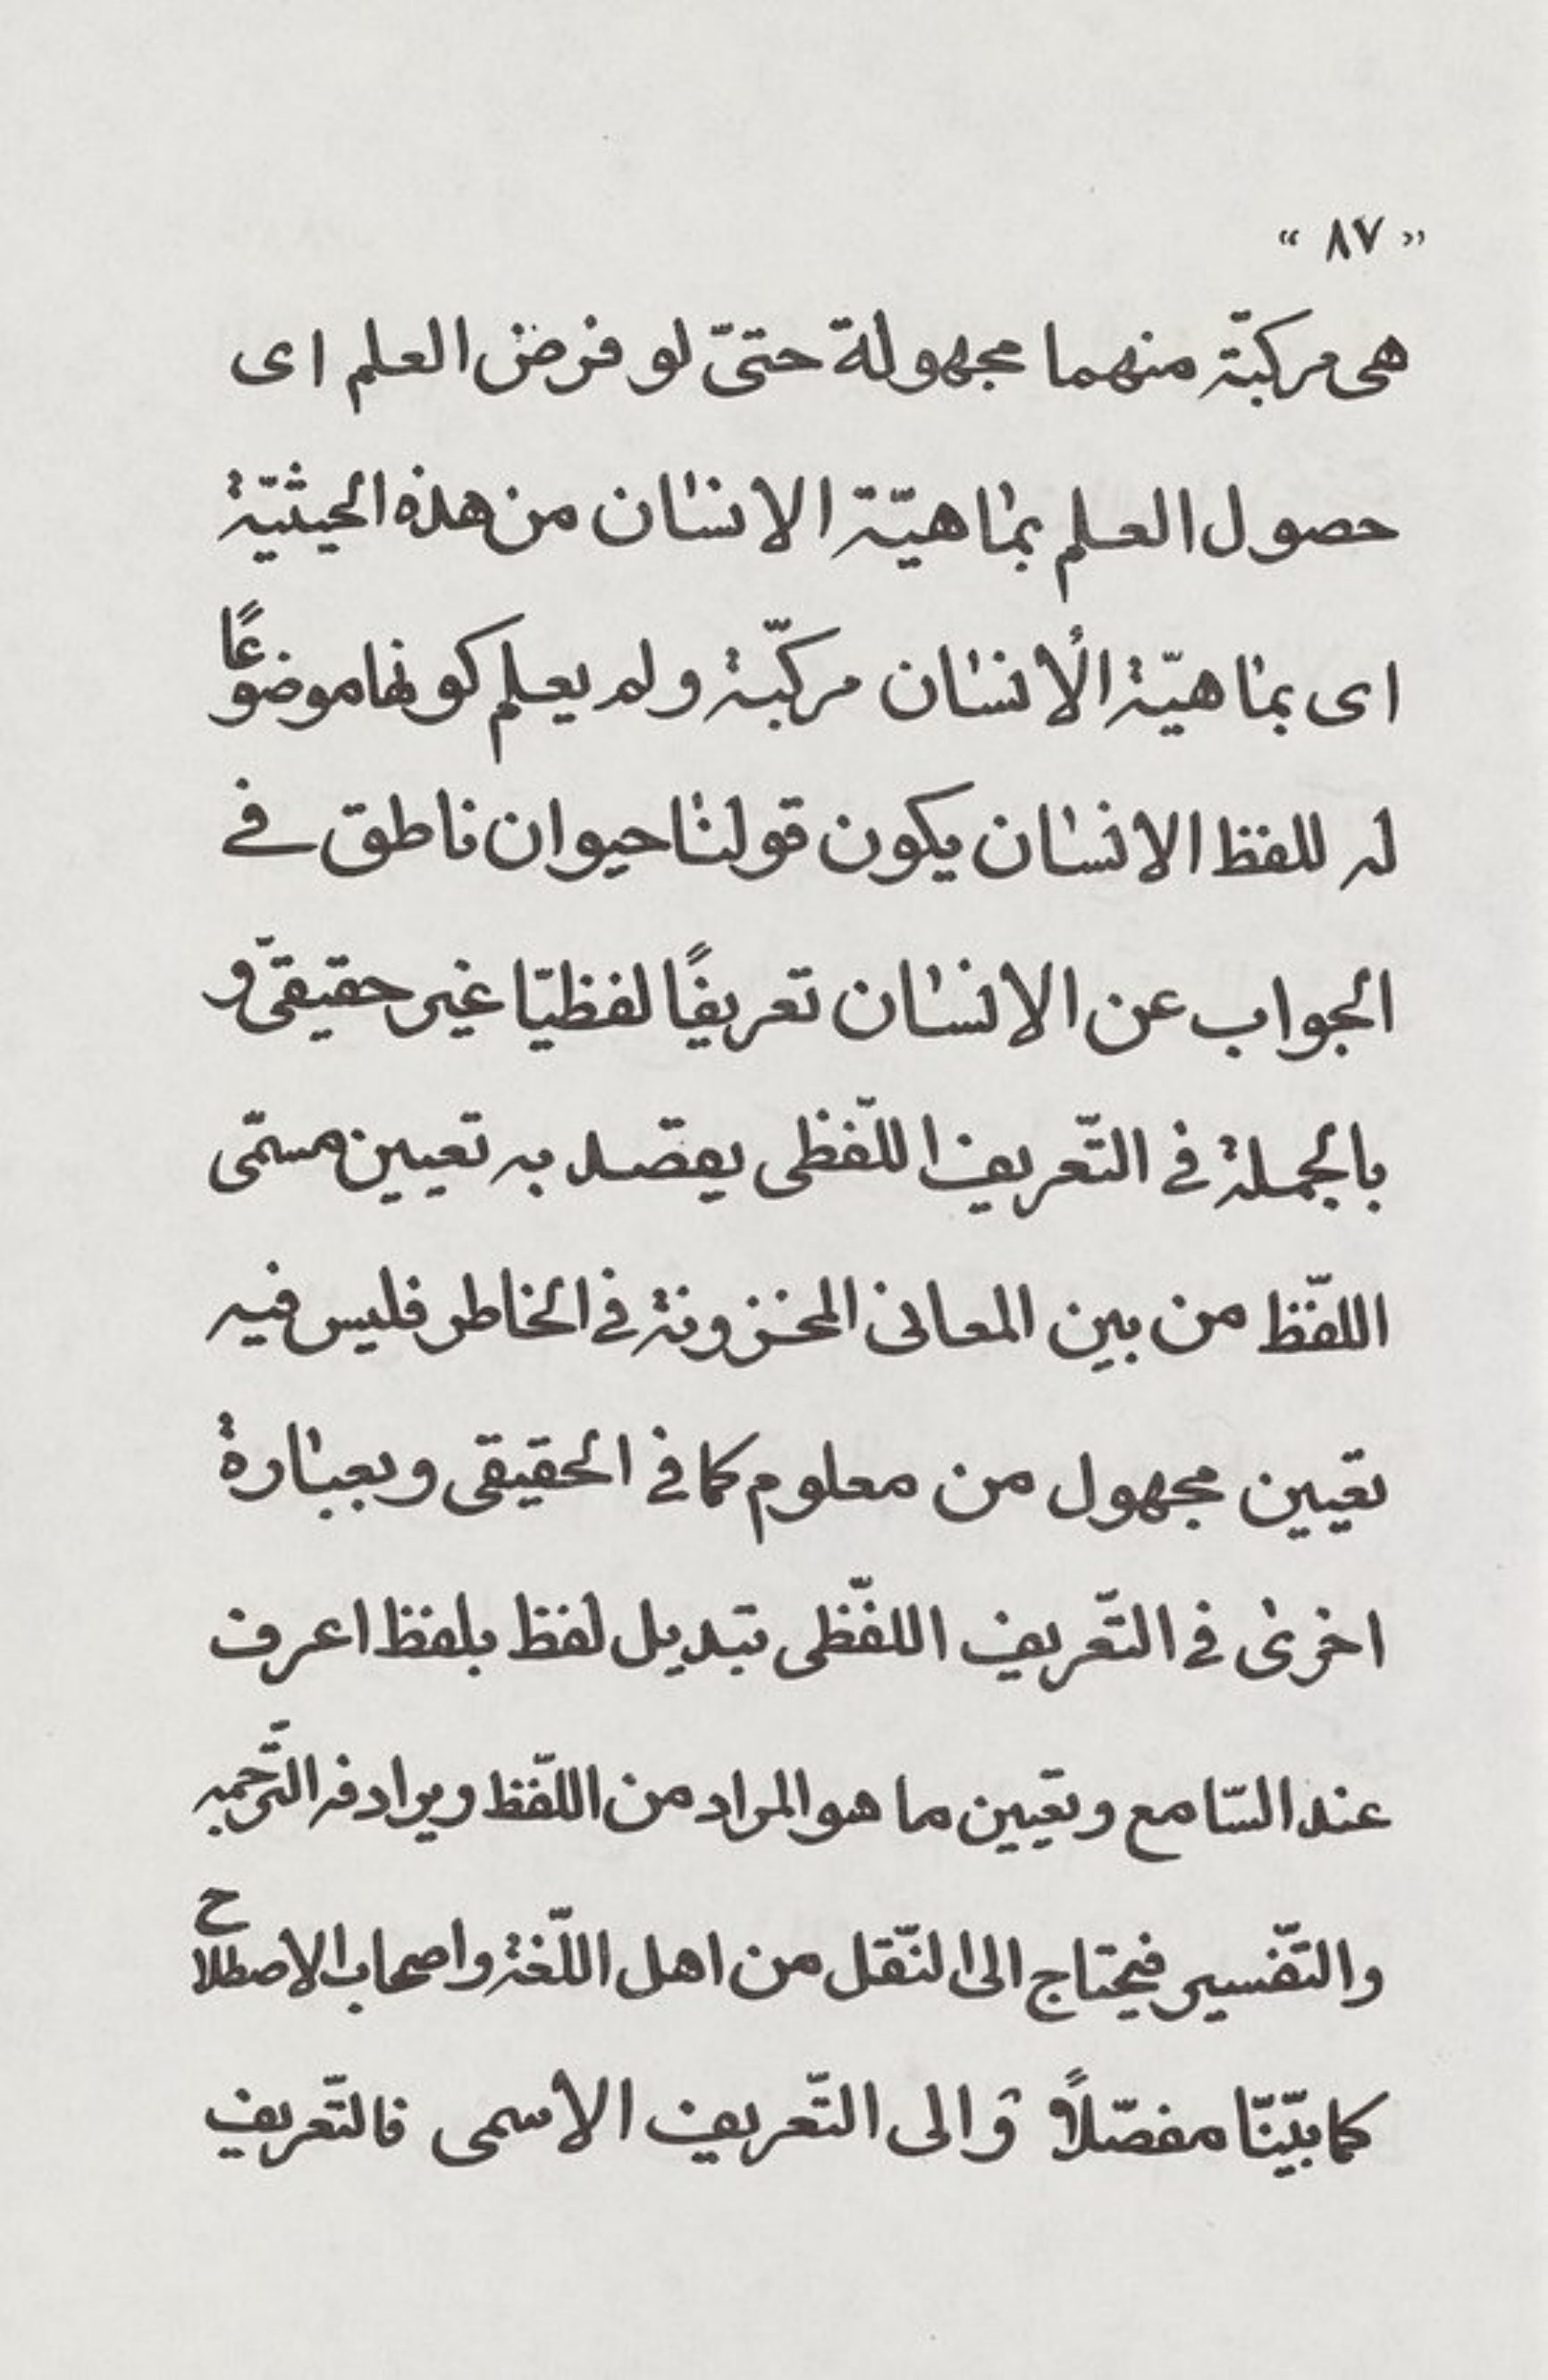 « ٨٧ »
هى مركبّة منهما مجهولة حتىّ لو فرض العلم اى
حصول العلم بماهيّة الانسان من هذه الحيثيّة
اى بماهيّة الأنسان مركّبة ولم يعلم كونها موضوعًا
له للفظ الانسان يكون قولنا حيوان ناطق فى
الجواب عن الانسان تعريفًا لفظيّا غير حقيقىّ و
بالجملة فى التّعريف اللّفظى يقصد به تعيين مسمّى
اللّفظ من بين المعانى المخزونة فى الخاطر فليس فيه
تعيين مجهول من معلوم كما فى الحقيقى وبعبارة
اخرى فى التّعريف اللفّظى تبديل لفظ بلفظ اعرف
عند السّامع وتعيين ما هو المراد من اللّفظ ويرادفه التّرجمه
والتّفسير فيحتاج الى النّقل من اهل اللّغة واصحاب الاصطلاح
كما بيّنّا مفصّلاً والى التّعريف الأسمى فالتّعريف